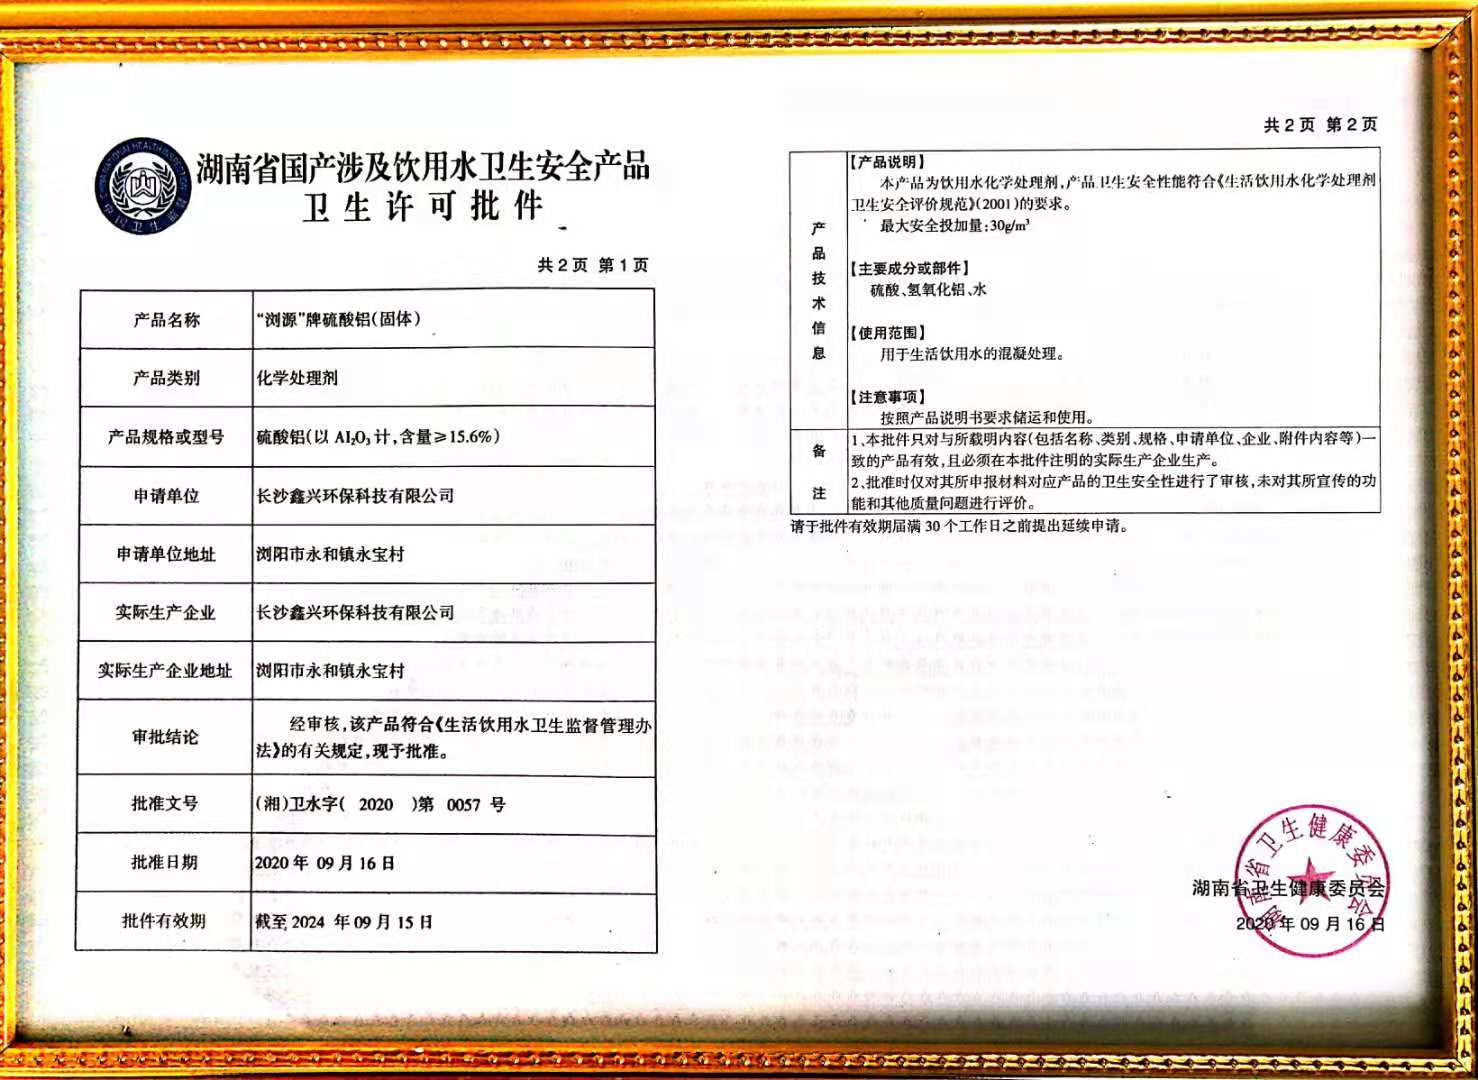 湖南省国产涉及饮用水卫生安全产品
卫生许可批件
共2页 第1页
产品名称 “浏源”牌硫酸铝(固体)
产品类别 化学处理剂
产品规格或型号 硫酸铝(以 Al₂O₃ 计,含量≥15.6%)
申请单位 长沙鑫兴环保科技有限公司
申请单位地址 浏阳市永和镇永宝村
实际生产企业 长沙鑫兴环保科技有限公司
实际生产企业地址 浏阳市永和镇永宝村
审批结论 经审核,该产品符合《生活饮用水卫生监督管理办
法》的有关规定,现予批准。
批准文号 (湘)卫水字( 2020 )第 0057 号
批准日期 2020 年 09 月 16 日
批件有效期 截至 2024 年 09 月 15 日
共2页 第2页
产品技术信息
【产品说明】
本产品为饮用水化学处理剂,产品卫生安全性能符合《生活饮用水化学处理剂
卫生安全评价规范》(2001)的要求。
最大安全投加量:30g/m³
【主要成分或部件】
硫酸、氢氧化铝、水
【使用范围】
用于生活饮用水的混凝处理。
【注意事项】
按照产品说明书要求储运和使用。
备注
1、本批件只对与所载明内容(包括名称、类别、规格、申请单位、企业、附件内容等)一
致的产品有效,且必须在本批件注明的实际生产企业生产。
2、批准时仅对其所申报材料对应产品的卫生安全性进行了审核,未对其所宣传的功
能和其他质量问题进行评价。
请于批件有效期届满 30 个工作日之前提出延续申请。
湖南省卫生健康委员会
湖南省卫生健康委员会
2020 年 09 月 16 日